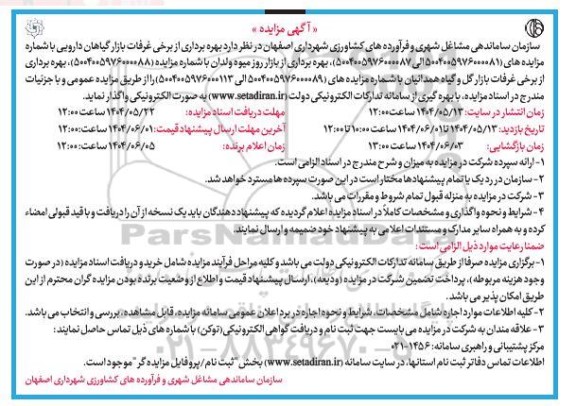 « آگهی مزایده »
سازمان ساماندهی مشاغل شهری و فرآورده های کشاورزی شهرداری اصفهان در نظر دارد بهره برداری از برخی غرفات بازار گیاهان دارویی با شماره
مزایده های (۵۰۰۴۰۰۵۹۷۶۰۰۰۰۸۱ الی ۵۰۰۴۰۰۵۹۷۶۰۰۰۰۸۷)، بهره برداری از بازار روز میوه ولدان با شماره مزایده (۵۰۰۴۰۰۵۹۷۶۰۰۰۰۸۸)، بهره برداری
از برخی غرفات بازار گل و گیاه همدانیان با شماره مزایده های (۵۰۰۴۰۰۵۹۷۶۰۰۰۰۸۹ الی ۵۰۰۴۰۰۵۹۷۶۰۰۰۱۱۳) را از طریق مزایده عمومی و با جزئیات
مندرج در اسناد مزایده، با بهره گیری از سامانه تدارکات الکترونیکی دولت (www.setadiran.ir) به صورت الکترونیکی واگذار نماید.
زمان انتشار در سایت: ۱۴۰۴/۰۵/۱۳ ساعت ۱۲:۰۰ مهلت دریافت اسناد مزایده: ۱۴۰۴/۰۵/۲۲ ساعت ۱۲:۰۰
تاریخ بازدید: ۱۴۰۴/۰۵/۱۳ تا ۱۴۰۴/۰۶/۰۱ ساعت ۱۰:۰۰ تا ۱۲:۰۰ آخرین مهلت ارسال پیشنهاد قیمت: ۱۴۰۴/۰۶/۰۱ ساعت ۱۲:۰۰
زمان بازگشایی: ۱۴۰۴/۰۶/۰۳ ساعت ۱۳:۰۰ زمان اعلام برنده: ۱۴۰۴/۰۶/۰۵ ساعت ۱۲:۰۰
۱- ارائه سپرده شرکت در مزایده به میزان و شرح مندرج در اسناد الزامی است.
۲- سازمان در رد یک یا تمام پیشنهادها مختار است در این صورت سپرده ها مسترد خواهد شد.
۳- شرکت در مزایده به منزله قبول تمام شروط و مقررات می باشد.
۴- شرایط و نحوه واگذاری و مشخصات کاملاً در اسناد مزایده اعلام گردیده که پیشنهاد دهندگان باید یک نسخه از آن را دریافت و با قید قبولی امضاء
کرده و به همراه سایر مدارک و مستندات اعلامی به پیشنهاد خود ضمیمه و ارسال نمایند.
ضمنا رعایت موارد ذیل الزامی است:
۱- برگزاری مزایده صرفا از طریق سامانه تدارکات الکترونیکی دولت می باشد و کلیه مراحل فرآیند مزایده شامل خرید و دریافت اسناد مزایده (در صورت
وجود هزینه مربوطه)، پرداخت تضمین شرکت در مزایده (ودیعه)، ارسال پیشنهاد قیمت و اطلاع از وضعیت برنده بودن مزایده گران محترم از این
طریق امکان پذیر می باشد.
۲- کلیه اطلاعات موارد اجاره شامل مشخصات، شرایط و نحوه اجاره در برد اعلان عمومی سامانه مزایده، قابل مشاهده، بررسی و انتخاب می باشد.
۳- علاقه مندان به شرکت در مزایده می بایست جهت ثبت نام و دریافت گواهی الکترونیکی (توکن) با شماره های ذیل تماس حاصل نمایند:
مرکز پشتیبانی و راهبری سامانه: ۱۴۵۶-۰۲۱
اطلاعات تماس دفاتر ثبت نام استانها، در سایت سامانه (www.setadiran.ir) بخش "ثبت نام/پروفایل مزایده گر" موجود است.
سازمان ساماندهی مشاغل شهری و فرآورده های کشاورزی شهرداری اصفهان
ParsNamadData
۰۲۱-۸۸۳۴۹۶۷۰